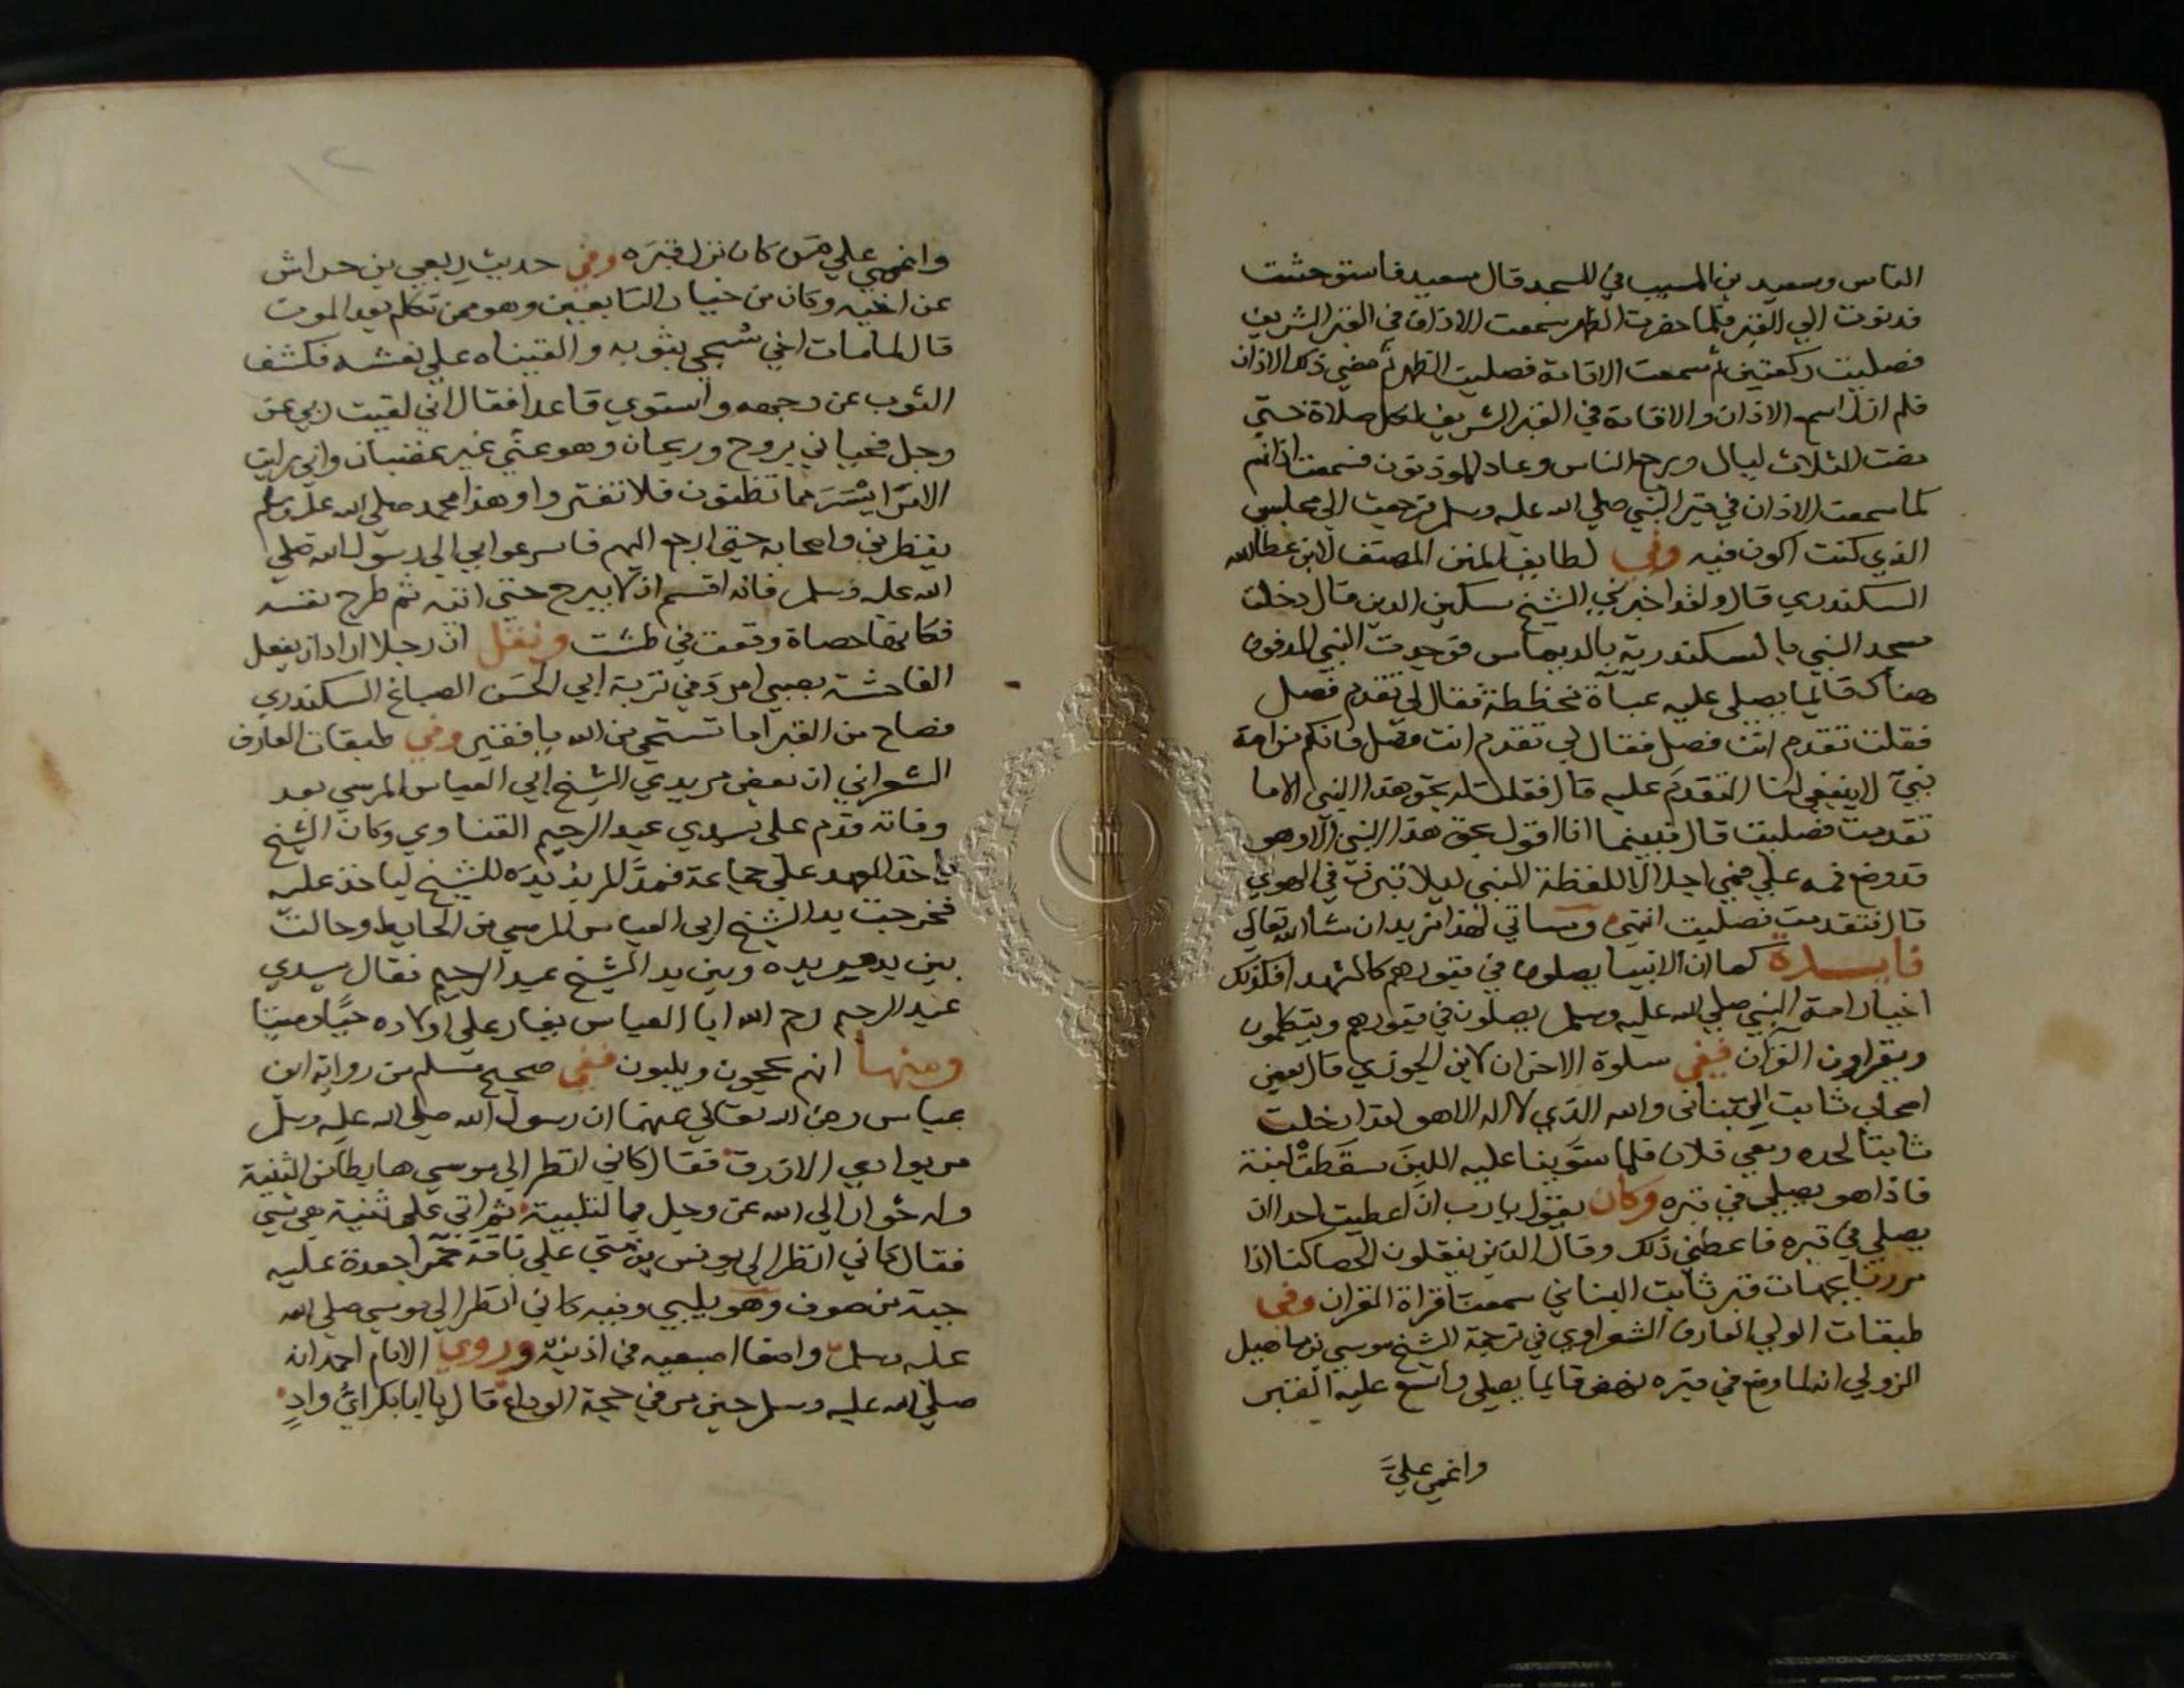 الناس وسعيد بن المسيب في المسجد قال سعيد فاستوحشت
فدنوت الي القبر فلما حضرت الظهر سمعت الاذان في القبر الشريف
فصليت ركعتين ثم سمعت الاقامة فصليت الظهر ثم مضي ذلك الاذان
فلم ازل اسمع الاذان والاقامة في القبر الشريف لكل صلاة حتي
مضت الثلاث ليال ورجع الناس وعاد الموذنون فسمعت اذانهم
كما سمعت الاذان في قبر النبي صلي الله عليه وسلم فرجعت الي مجلسي
الذي كنت اكون فيه وفي لطايف المنن المصنف لابن عطاالله
السكندري قال ولقد اخبرني الشيخ مسكين الدين قال دخلت
مسجد النبي بالسكندرية بالديماس فوجدت النبي المدفون
هناك قايما يصلي عليه عباة مخططة فقال لي تقدم فصل
فقلت تقدم انت فصل فقال لي تقدم انت فصل فانكم من امة
نبي لا ينبغي لنا التقدم عليه قال فقلت له بحق هذا النبي الا ما
تقدمت فصليت قال فبينما انا اقول بحق هذا النبي الا وهو
قد وضع فمه علي فمي اجلالا للفظة النبي ليلا تبرز في الهوي
قال فتقدمت فصليت انتهي وسياتي لهذا مزيد ان شا الله تعالي
فايدة كما ان الانبيا يصلون في قبورهم كالشهدا فكذلك
اخيار امة النبي صلي الله عليه وسلم يصلون في قبورهم ويتكلمون
ويقراون القران ففي سلوة الاحزان لابن الجوزي قال بعض
اصحاب ثابت البناني والله الذي لا اله الا هو لقد ادخلت
ثابتا لحده ومعي فلان فلما سوينا عليه اللبن سقطت لبنة
فاذا هو يصلي في قبره وكان يقول يا رب ان اعطيت احدا ان
يصلي في قبره فاعطني ذلك وقال الذين ينقلون الحصا كنا اذا
مررنا بجهات قبر ثابت البناني سمعنا قراة القران وفي
طبقات الولي العارف الشعراوي في ترجمة الشيخ موسي بن ماهيل
الزولي انه لما وضع في قبره نهض قايما يصلي واتسع عليه القبر
واغمي علي
واغمي علي من كان نزل قبره وفي حديث ربعي بن حراش
عن اخيه وكان من خيار التابعين وهو ممن تكلم بعد الموت
قال لما مات اخي سجي بثوبه والقيناه علي نعشه فكشف
الثوب عن وجهه واستوي قاعدا فقال اني لقيت ربي عز
وجل فحياني بروح وريحان وهو عني غير غضبان واني رايت
الامر ايسر مما تظنون فلا تفتروا وهذا محمد صلي الله عليه وسلم
ينتظرني واصحابه حتي ارجع اليهم فاسرعوا بي الي رسول الله صلي
الله عليه وسلم فانه اقسم ان لا يبرح حتي اتيه ثم طرح نفسه
فكانها حصاة وقعت في طشت ونقل ان رجلا اراد ان يفعل
الفاحشة بصبي امرد في تربة ابي الحسن الصباغ السكندري
فصاح من القبر اما تستحي من الله يا فقير وفي طبقات العارف
الشعراني ان بعض مريدي الشيخ ابي العباس المرسي بعد
وفاته قدم علي سيدي عبد الرحيم القناوي وكان الشيخ
ياخذ العهد علي جماعة فمد المريد يده للشيخ لياخذ عليه
فخرجت يد الشيخ ابي العباس المرسي من الحايط وحالت
بين يده وبين يد الشيخ عبد الرحيم فقال سيدي
عبد الرحيم رحم الله ابا العباس يغار علي اولاده حيا وميتا
ومنها انهم يحجون ويلبون ففي صحيح مسلم من رواية ابن
عباس رضي الله تعالي عنهما ان رسول الله صلي الله عليه وسلم
مر بوادي الازرق فقال كاني انظر الي موسي هابطا من الثنية
وله جوار الي الله عز وجل بالتلبية ثم اتي علي ثنية هرشي
فقال كاني انظر الي يونس بن متي علي ناقة حمرا جعدة عليه
جبة من صوف وهو يلبي وفيه كاني انظر الي موسي صلي الله
عليه وسلم واضعا اصبعيه في اذنيه وروي الامام احمد انه
صلي الله عليه وسلم حين مر في حجة الوداع قال يا ابا بكر اي واد